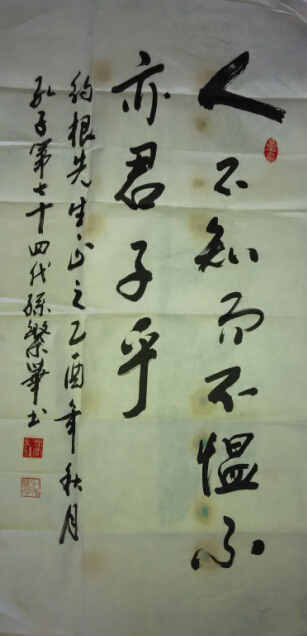 人不知而不愠不
亦君子乎
約根先生正之乙酉年秋月
孔子第七十四代孫繁華书